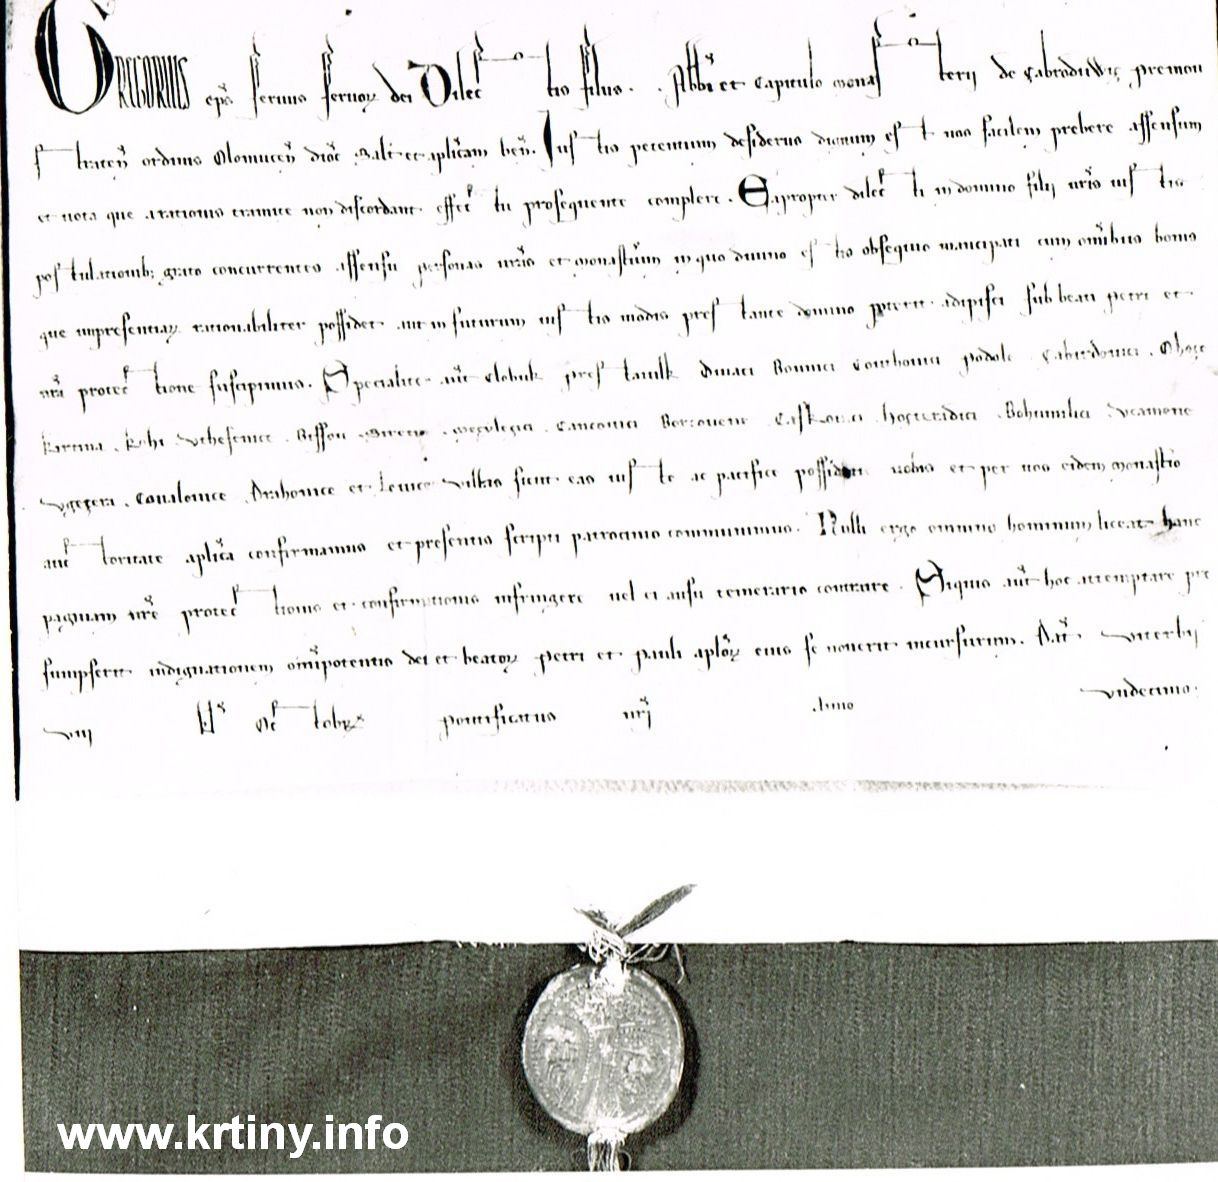 GREGORIUS ep̄s seruus seruoꝝ dei Dilectis filiis . Abbi et Capitulo monasterij de premon
straten̄ ordinis Olomucen̄ dioc̄ Salt̄ et aplicam ben̄. Iustis petentium desideriis dignum est nos facilem prebere assensum
et uota que a rationis tramite non discordant effectu prosequente complere. Eapropter dilecti in domino filij nr̄i iustis
postulationib; grato concurrentes assensu personas nr̄as et monasterium in quo diuino estis obsequio mancipati cum om̄ibus bonis
que inpresentiaꝝ rationabiliter possidet aut in futurum iustis modis prestante domino poterit adipisci sub beati petri et
nr̄a protectione suscipimus. Specialiter aut̄ Clobuk
Kirtina . Bohumilici
Conalouice . Drahouice et uillas sicut eas iuste ac pacifice possidetis uobis et per uos eidem monasterio
auctoritate aplica confirmamus et presentis scripti patrocinio communimus. Nulli ergo omnino hominum liceat hanc
paginam nr̄e protectionis et confirmationis infringere uel ei ausu temerario contraire. Siquis aut̄ hoc attemptare pre
sumpserit indignationem om̄ipotentis dei et beatoꝝ petri et pauli apl̄oꝝ eius se nouerit incursurum. Dat̄ Viterbij
VIII kl̄ Octobr̄ pontificatus nr̄i Anno Vndecimo.
www.krtiny.info